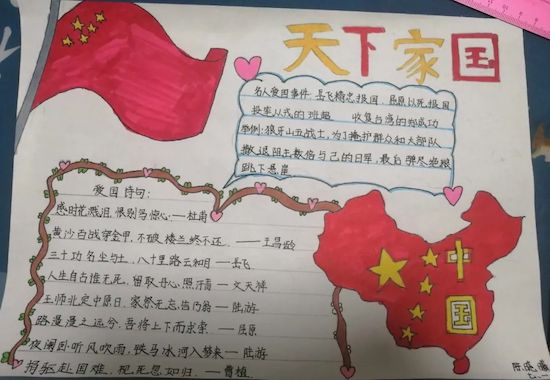 天下家国
名人爱国事件:岳飞精忠报国 屈原以死报国
投笔从戎的班超 收复台湾的郑成功
举例:狼牙山五战士,为了掩护群众和大部队
撤退阻击数倍与己的日军,最后弹尽粮
跳下悬崖
爱国诗句:
感时花溅泪,恨别鸟惊心.—杜甫
黄沙百战穿金甲,不破楼兰终不还.—王昌龄
三十功名尘与土,八十里路云和月—岳飞
人生自古谁无死,留取丹心照汗青—文天祥
王师北定中原日,家祭无忘告乃翁—陆游
路漫漫之远兮,吾将上下而求索.—屈原
夜阑卧听风吹雨,铁马冰河入梦来—陆游
捐躯赴国难,视死忽如归.—曹植
中国